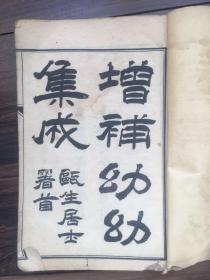 增補幼幼
集成
甌生居士
署首